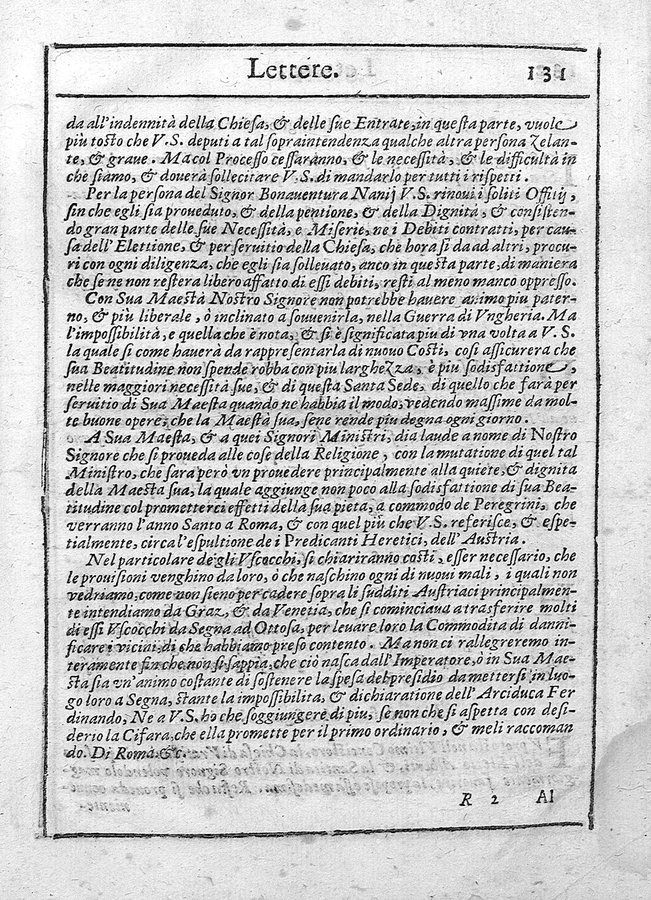 Lettere. 131
da all'indennità della Chiesa, & delle sue Entrate, in questa parte, vuole
più tosto che V. S. deputi a tal sopraintendenza qualche altra persona zelan-
te, & graue. Ma col Processo cessaranno, & le necessità, & le difficultà in
che siamo, & douerà sollecitare V. S. di mandarlo per tutti i rispetti.
Per la persona del Signor Bonauentura Nanij V. S. rinoui i soliti Offitij,
sin che egli sia proueduto, & della pentione, & della Dignità, & consisten-
do gran parte delle sue Necessità, e Miserie, ne i Debiti contratti, per cau-
sa dell'Elettione, & per seruitio della Chiesa, che hora si da ad altri, procu-
ri con ogni diligenza, che egli sia solleuato, anco in questa parte, di maniera
che se ne non restera libero affatto di essi debiti, resti al meno manco oppresso.
Con Sua Maestà Nostro Signore non potrebbe hauere animo piu pater-
no, & più liberale, ò inclinato a souuenirla, nella Guerra di Vngheria. Ma
l'impossibilità, e quella che è nota, & si è significata piu di vna volta a V. S.
la quale si come hauerà da rappresentarla di nuouo Costi, così assicurera che
sua Beatitudine non spende robba con piu larghezza, è più sodisfattione,
nelle maggiori necessità sue, & di questa Santa Sede, di quello che farà per
seruitio di Sua Maesta quando ne habbia il modo, vedendo massime da mol-
te buone opere, che la Maestà sua, sene rende piu degna ogni giorno.
A Sua Maesta, & a quei Signori Ministri, dia laude a nome di Nostro
Signore che si proueda alle cose della Religione, con la mutatione di quel tal
Ministro, che sarà però vn prouedere principalmente alla quiete, & dignita
della Maesta sua, la quale aggiunge non poco alla sodisfattione di sua Bea-
titudine col prometterci effetti della sua pieta, a commodo de Peregrini, che
verranno l'anno Santo a Roma, & con quel più che V. S. referisce, & espe-
tialmente, circa l'espultione de i Predicanti Heretici, dell'Austria.
Nel particolare degli Vscocchi, si chiariranno costì, esser necessario, che
le prouisioni venghino da loro, ò che naschino ogni dì nuoui mali, i quali non
vedriamo, come non sieno per cadere sopra li sudditi Austriaci principalmen-
te intendiamo da Graz, & da Venetia, che si cominciaua a trasferire molti
di essi Vscocchi da Segna ad Ottosa, per leuare loro la Commodita di danni-
ficare i vicini, di che habbiamo preso contento. Ma non ci rallegreremo in-
teramente fin che non si sappia, che ciò nasca dall'Imperatore, ò in Sua Mae-
stà sia vn'animo costante di sostenere la spesa del presidio da mettersi in luo-
go loro a Segna, stante la impossibilita, & dichiaratione dell'Arciduca Fer
dinando, Ne a V. S. ho che soggiungere di piu, se non che si aspetta con desi-
derio la Cifara, che ella promette per il primo ordinario, & meli raccoman
do. Di Roma &c.
R 2 Al